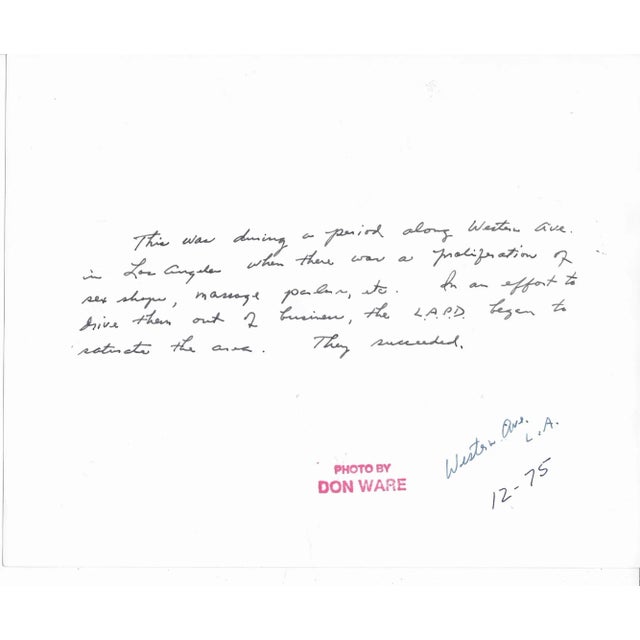 This was during a period along Western Ave.
in Los Angeles when there was a proliferation of
sex shops, massage parlors, etc. In an effort to
drive them out of business, the L.A.P.D. began to
saturate the area. They succeeded.
Western Ave.
L.A.
12-75
PHOTO BY
DON WARE